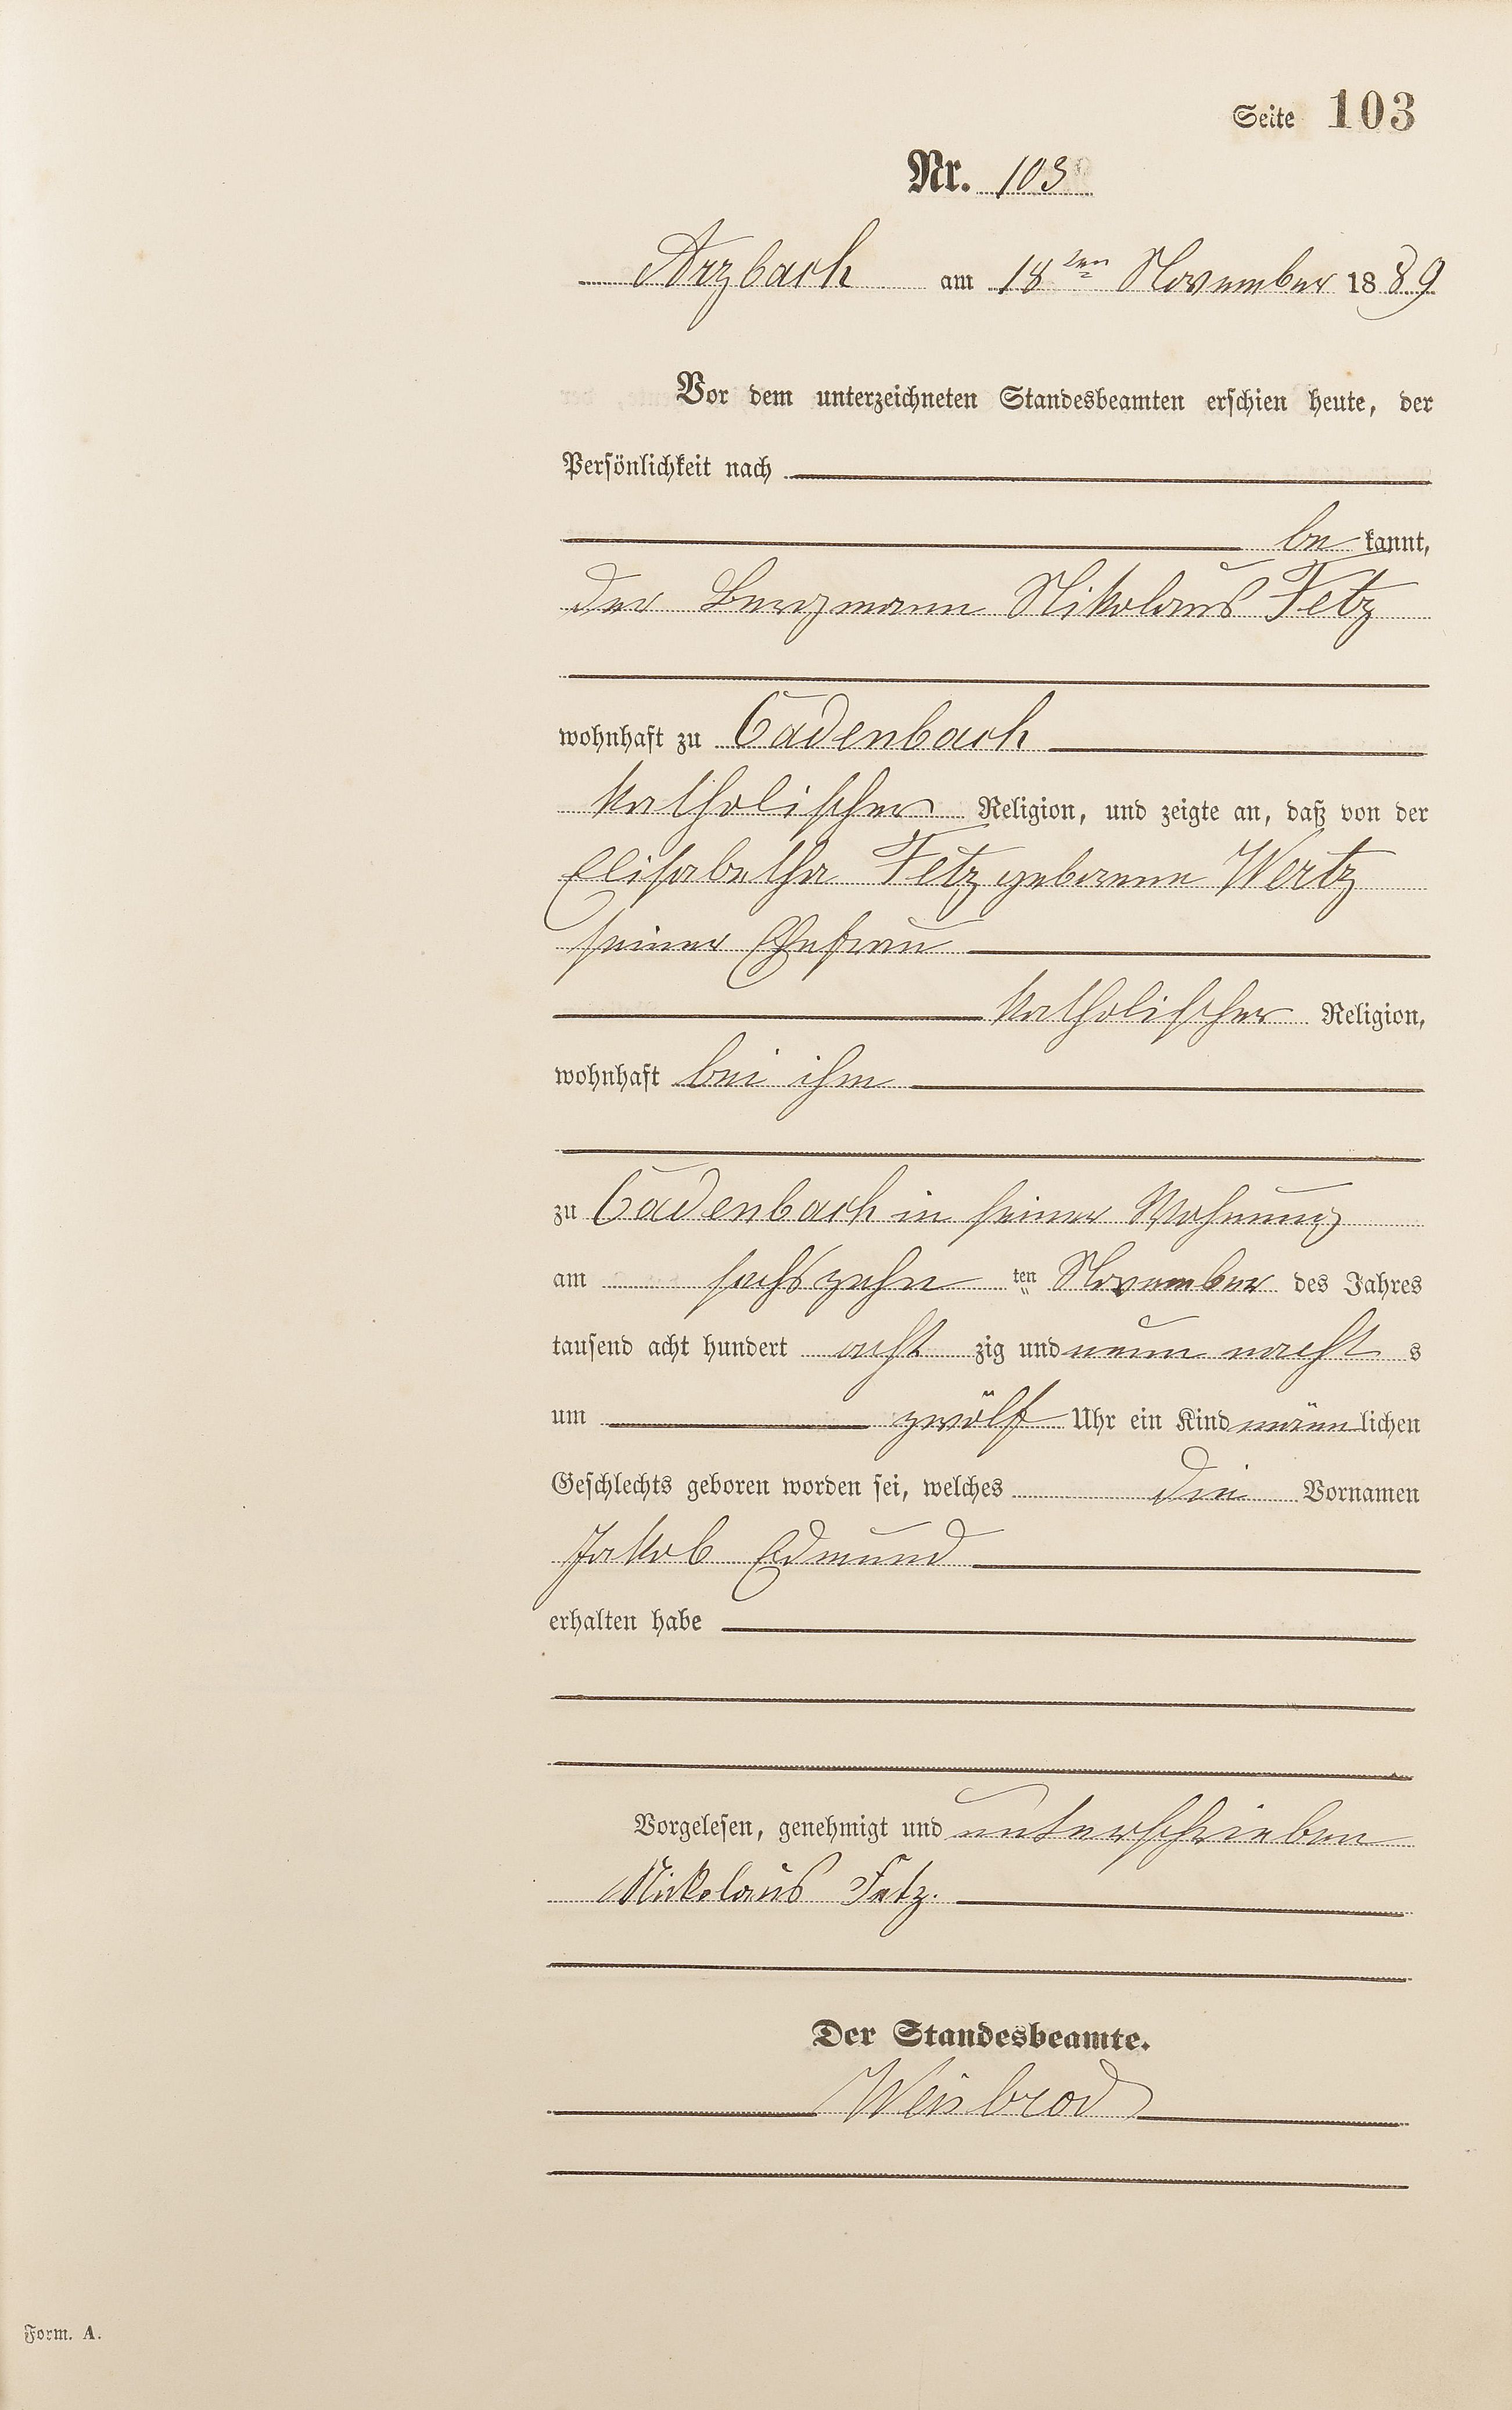 Seite 103
Nr. 103
Arzbach am 18ten November 1889
Vor dem unterzeichneten Standesbeamten erschien heute, der
Persönlichkeit nach
bekannt,
der Bergmann Nikolaus Fetz
wohnhaft zu Cadenbach
katholischer Religion, und zeigte an, daß von der
Elisabetha Fetz geborene Wertz
seiner Ehefrau
katholischer Religion,
wohnhaft bei ihm
zu Cadenbach in seiner Wohnung
am sechszehn ten November des Jahres
tausend acht hundert acht zig und neun nacht s
um zwölf Uhr ein Kind männlichen
Geschlechts geboren worden sei, welches die Vornamen
Jakob Edmund
erhalten habe
Vorgelesen, genehmigt und unterschrieben
Nikolaus Fetz.
Der Standesbeamte.
Weisbrod
Form. A.